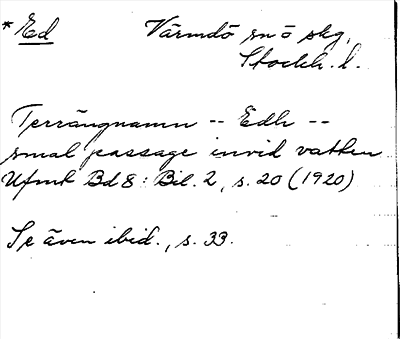 * Ed Värmdö sn o skg.
Stockh. l.
Terrängnamn -- Edh --
smal passage invid vatten
Ufmk Bd 8: Bil. 2, s. 20 (1920)
Se även ibid., s. 33.